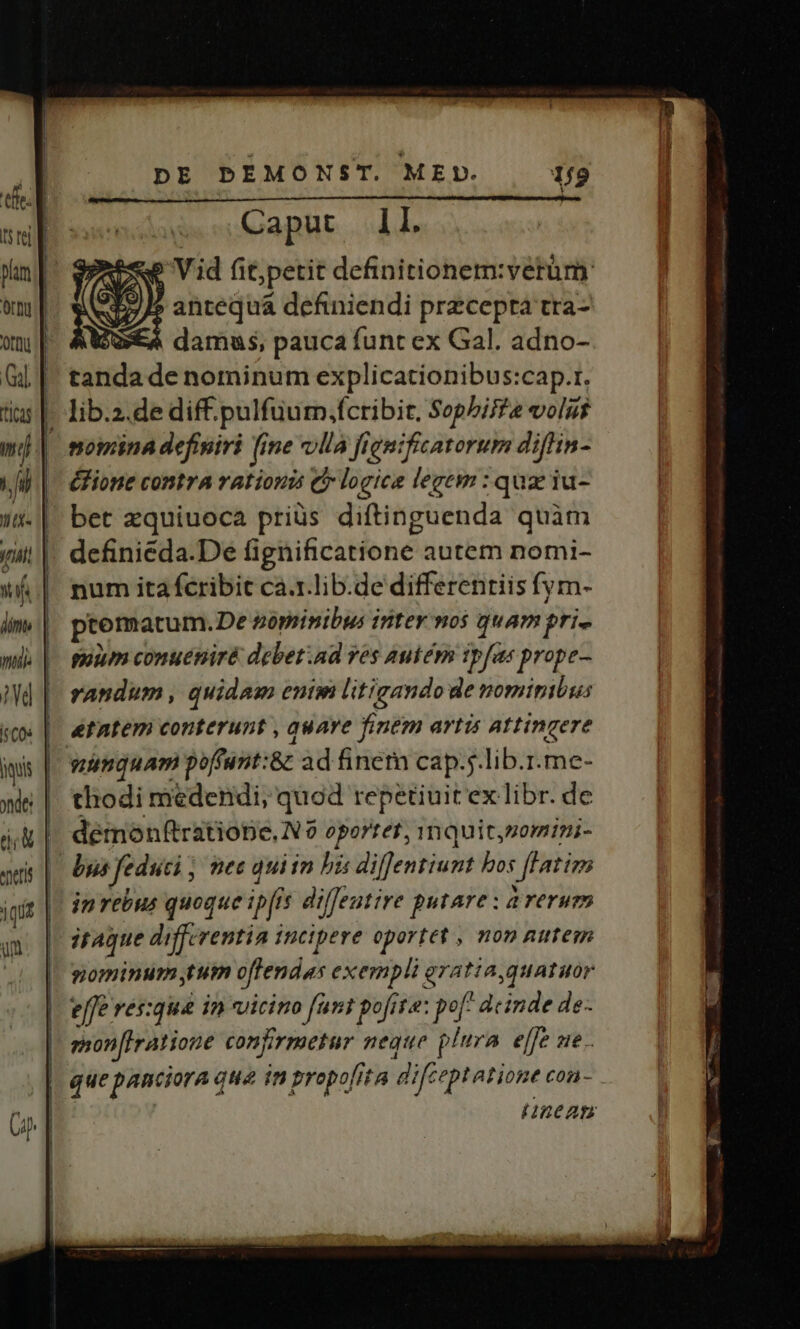 DE DEMONST. MED. 159
Caput II.
QVid ſit, petit definitionem: verùm
antequã definiendi præcepta tra-
damus, pauca ſunt ex Gal. adno-
tanda de nominum explicationibus: cap.1.
lib.2. de diff. pulſuum, ſcribit, Sophiſta volũt
nomina definiri ſine vlla ſignificatorum diſtin-
ctione contra rationis & logicæ legem: quæ iu-
bet æquiuoca priùs diſtinguenda quàm
definiẽda. De ſignificatione autem nomi-
num ita ſcribit ca.1. lib. de differentiis ſym-
ptomatum. De nominibus inter nos quam pri-
mùm conuenire debet. ad res autem ipſas prope-
randum, quidam enim litigando de nominibus
ætatem conterunt, quare finem artis attingere
nunquam poſſunt: & ad finem cap.5. lib.1. me-
thodi medendi, quod repetiuit ex libr. de
demonſtratione. Nō oportet, inquit, nomini-
bus ſeduci, nec qui in his diſſentiunt hos ſtatim
in rebus quoque ipſis diſſentire putare: à rerum
itaque differentia incipere oportet, non autem
nominum, tum oſtendas exempli gratia, quatuor
eſſe res: quæ in vicino ſunt poſitæ: poſt deinde de-
monſtratione confirmetur neque plura eſſe ne-
que panciora quæ in propoſita diſceptatione con-
tineant
eſſe-
ts rei
plam
ornu
ornu
Gal.
ticas
iscos
iquis
onde:
ti, &
eneris
iquæ
um
Cap.